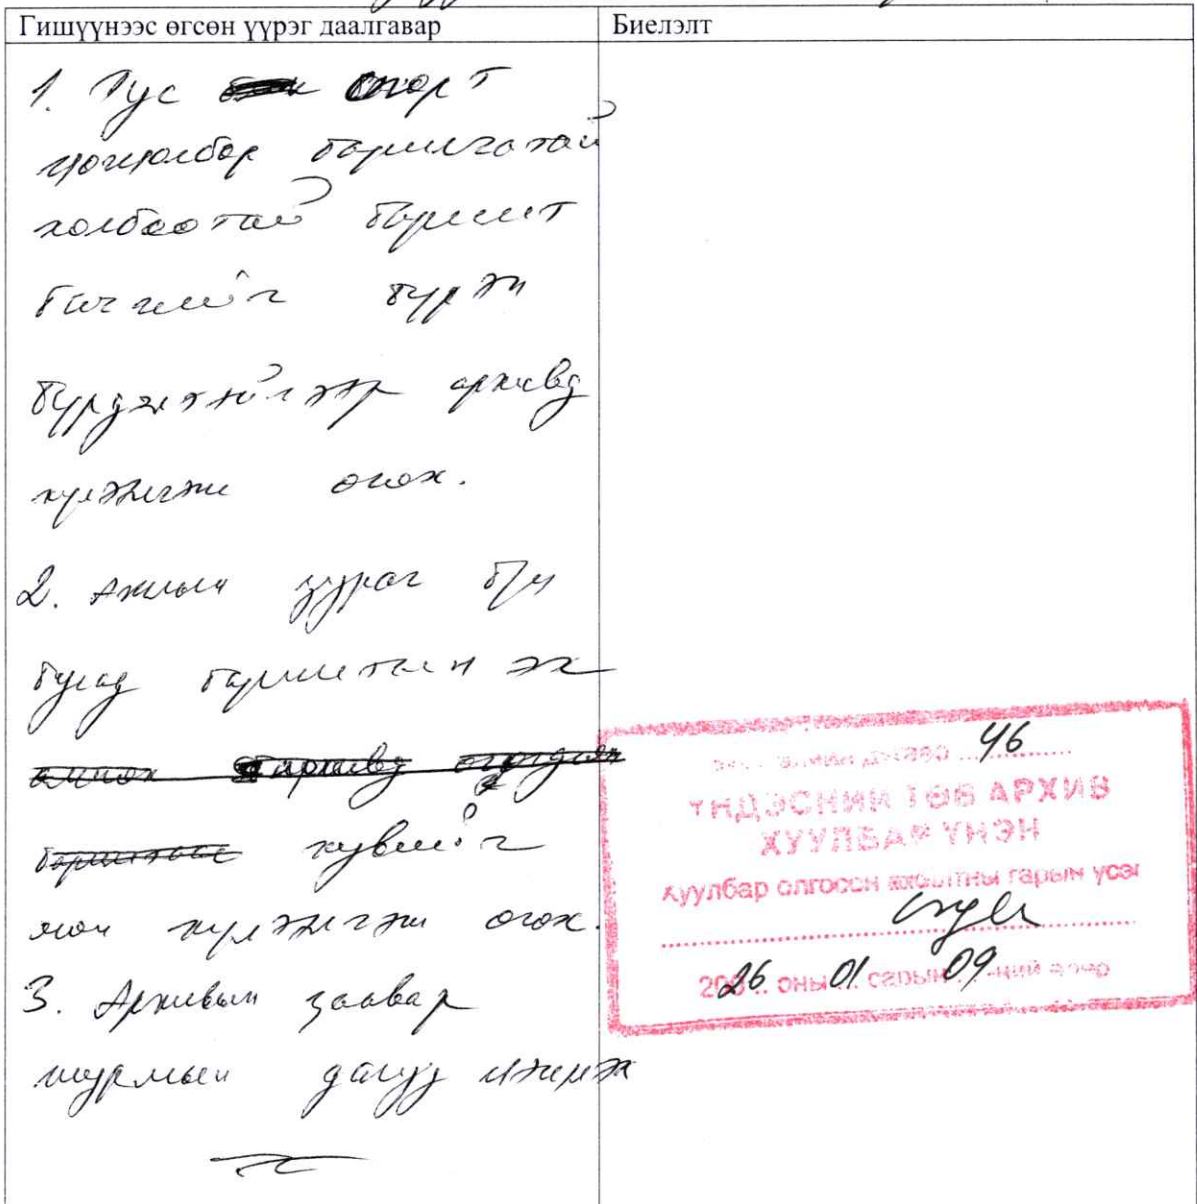 Гишүүнээс өгсөн үүрэг даалгавар
Биелэлт
1. Тус спорт
цогцолбор барилгатай
холбоотой баримт
бичгийг бүрэн
бүрдэлтэйгээр архивд
хүлээлгэж өгөх.
2. Ажлын зураг б/ц
бусад баримтын эх
архивд
хувийг
мөн хүлээлгэж өгөх.
3. Архивын заавар
журмын дагуу нэгжэх
дугаар 46
ҮНДЭСНИЙ ТӨВ АРХИВ
ХУУЛБАР ҮНЭН
Хуулбар олгосон ажилтны гарын үсэг
2026 оны 01 сарын 09-ний өдөр